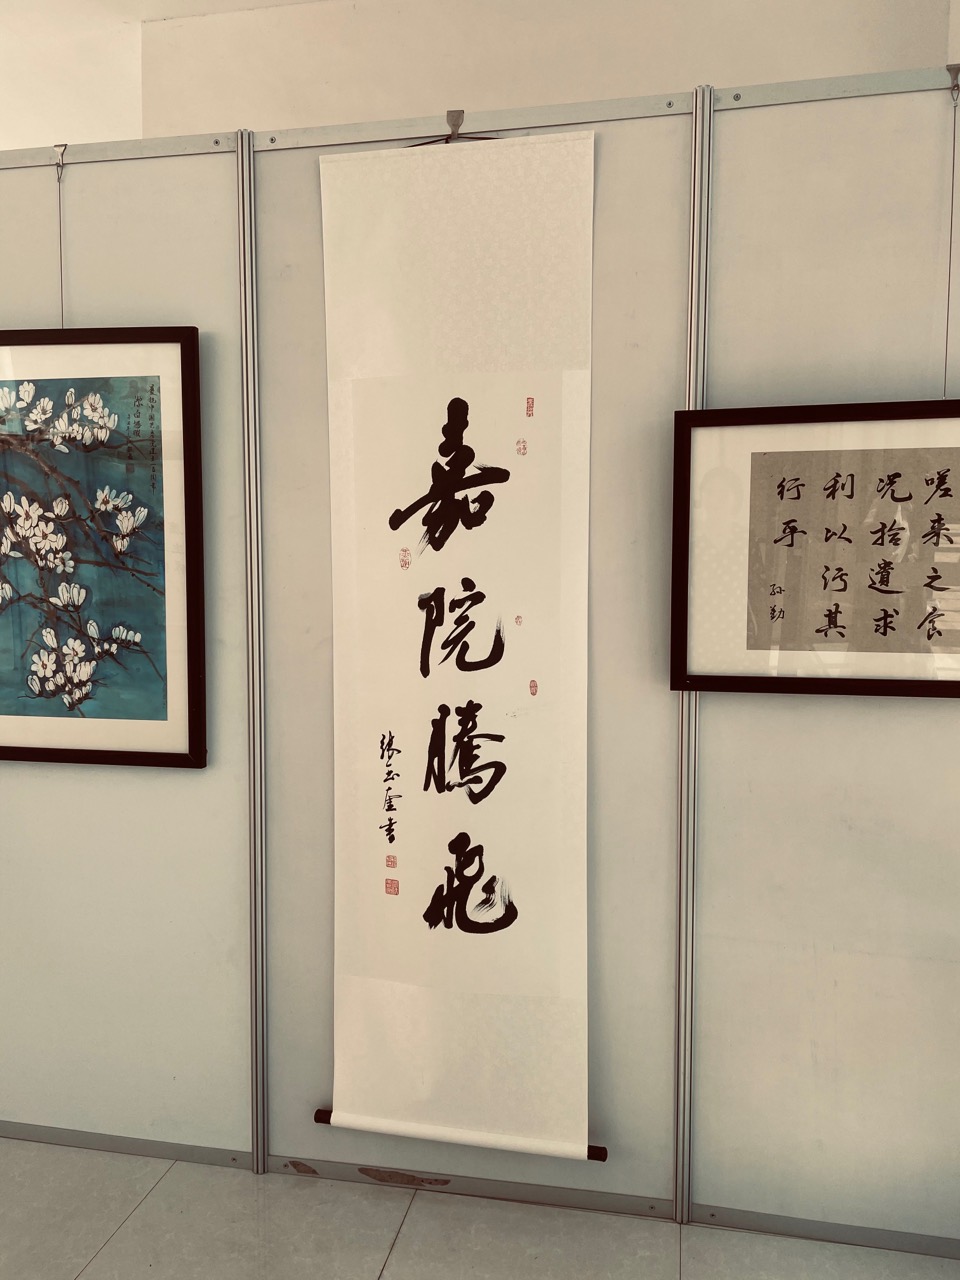 嘉院腾飞
张玉奎书
嗟来之食
况拾遗求
利以污其
行乎
孙勤